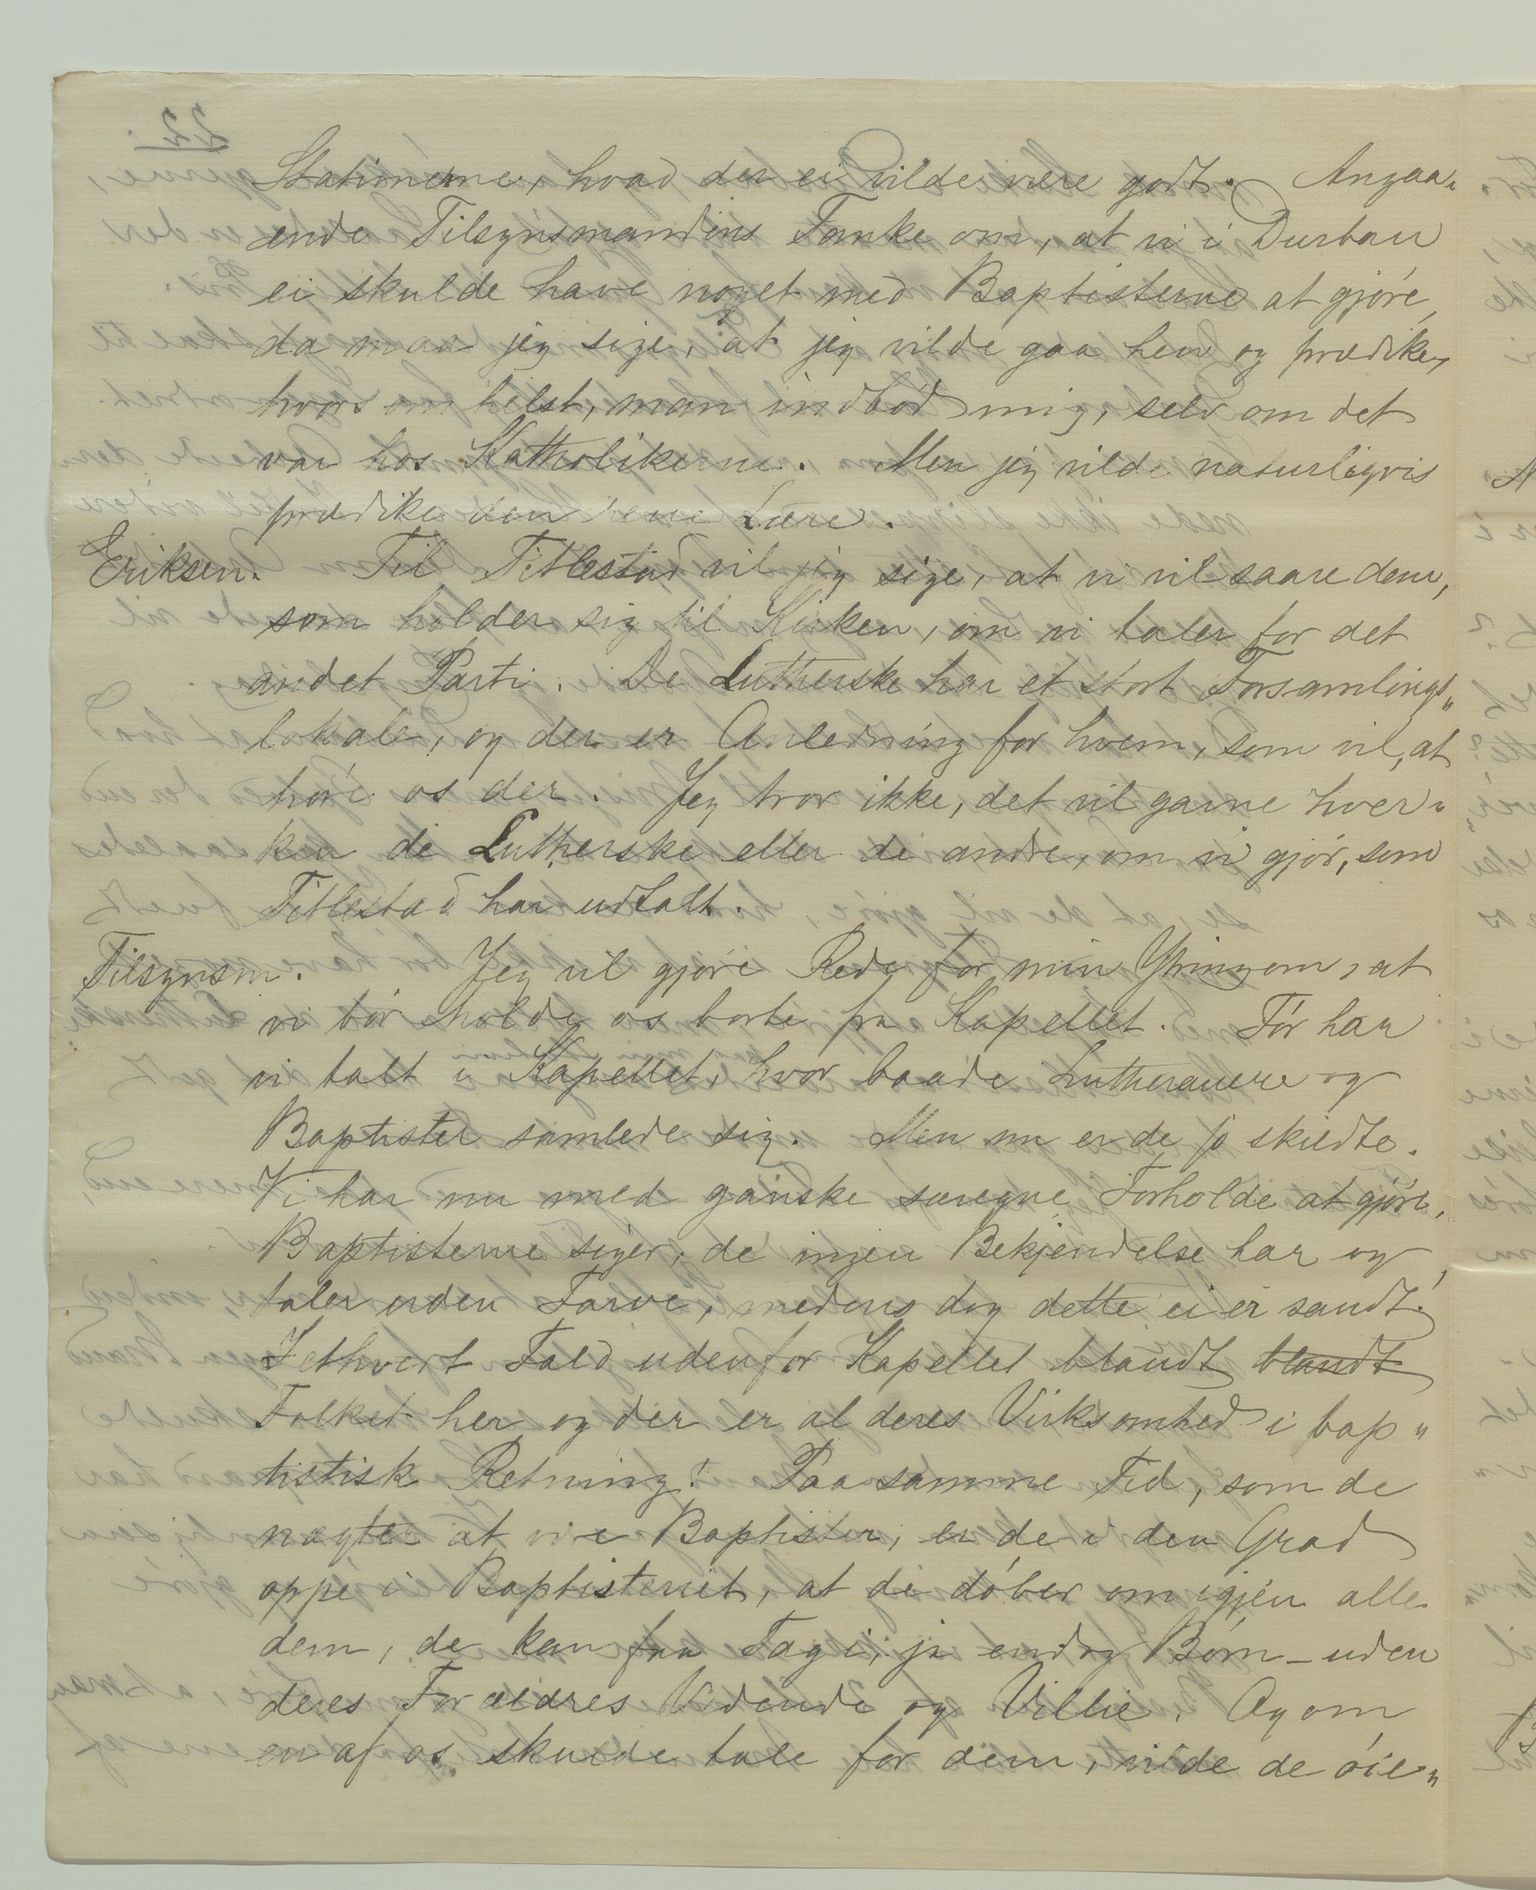 Stationerne, hvad der ei vilde være godt. Angaa„
ende Tilsynsmandens Tanke om, at vi i Durban
ei skulde have noget med Baptisterne at gjøre,
da maa jeg sige, at jeg vilde gaa hen og prædike,
hvorsomhelst, man indbød mig, selv om det
var hos Katholikerne. Men jeg vilde naturligvis
prædike den rene Lære.
Eriksen. Til Titlestad vil jeg sige, at vi vil saare dem,
som holder sig til Kirken, om vi taler for det
andet Parti. De Lutherske har et stort Forsamlings„
lokale, og der er Anledning for hvem, som vil, at
høre os der. Jeg tror ikke, det vil gavne hver„
ken de Lutherske eller de andre, om vi gjør, som
Titlestad har udtalt.
Tilsynsm. Jeg vil gjøre Rede for min Ytring om, at
vi bør holde os borte fra Kapellet. Før har
vi talt i Kapellet, hvor baade Lutheranere og
Baptister samlede sig. Men nu er de jo skildte.
Vi har nu med ganske særegne Forholde at gjøre.
Baptisterne siger, de ingen Bekjendelse har og
taler uden Farve, medens dog dette ei er sandt!
I ethvert Fald udenfor Kapellet blandt blandt
Folket her og der er al deres Virksomhed i bap„
tistisk Retning! Paa samme Tid, som de
nægter at være Baptister, er de i den Grad
oppe i Baptisteriet, at de døber om igjen alle
dem, de kan faa Tag i, ja endog Børn – uden
deres Forældres Vidende og Villie. Og om
en af os skulde tale for dem, vilde de øie„